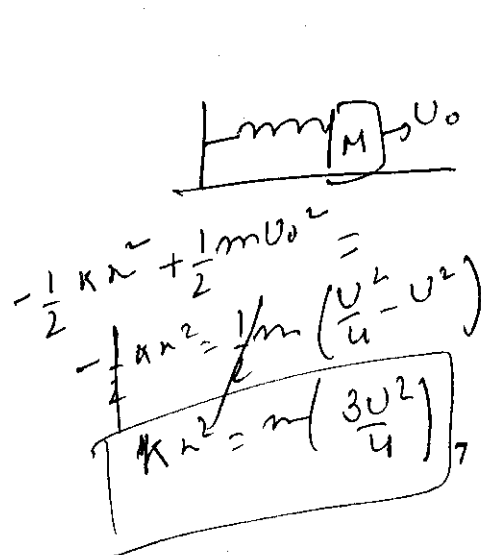 M → U₀
-½ kx² + ½ mU₀² =
-½ kx² = ½ m (U²/4 - U²)
kx² = m (3U²/4),